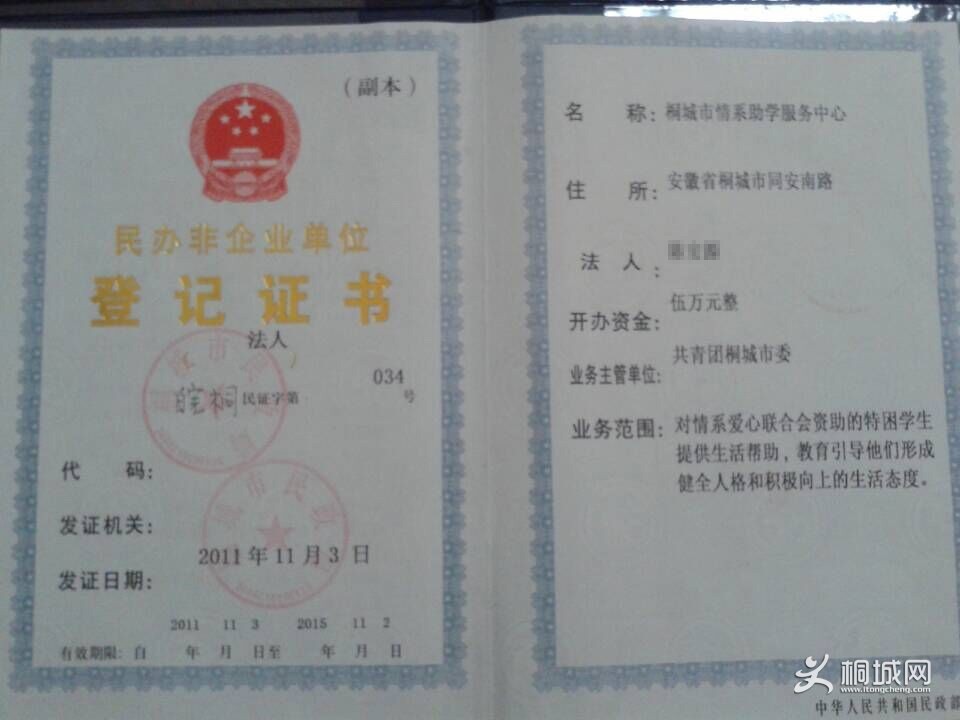 （副本）
民办非企业单位
登记证书
法人
皖桐民证字第034号
代 码：
发证机关：
2011年11月3日
发证日期：
2011 11 3 2015 11 2
有效期限：自 年 月 日至 年 月 日
名 称：桐城市情系助学服务中心
住 所：安徽省桐城市同安南路
法 人：
开办资金：伍万元整
业务主管单位：共青团桐城市委
业务范围：对情系爱心联合会资助的特困学生
提供生活帮助，教育引导他们形成
健全人格和积极向上的生活态度。
桐城网
www.itongcheng.com
中华人民共和国民政部